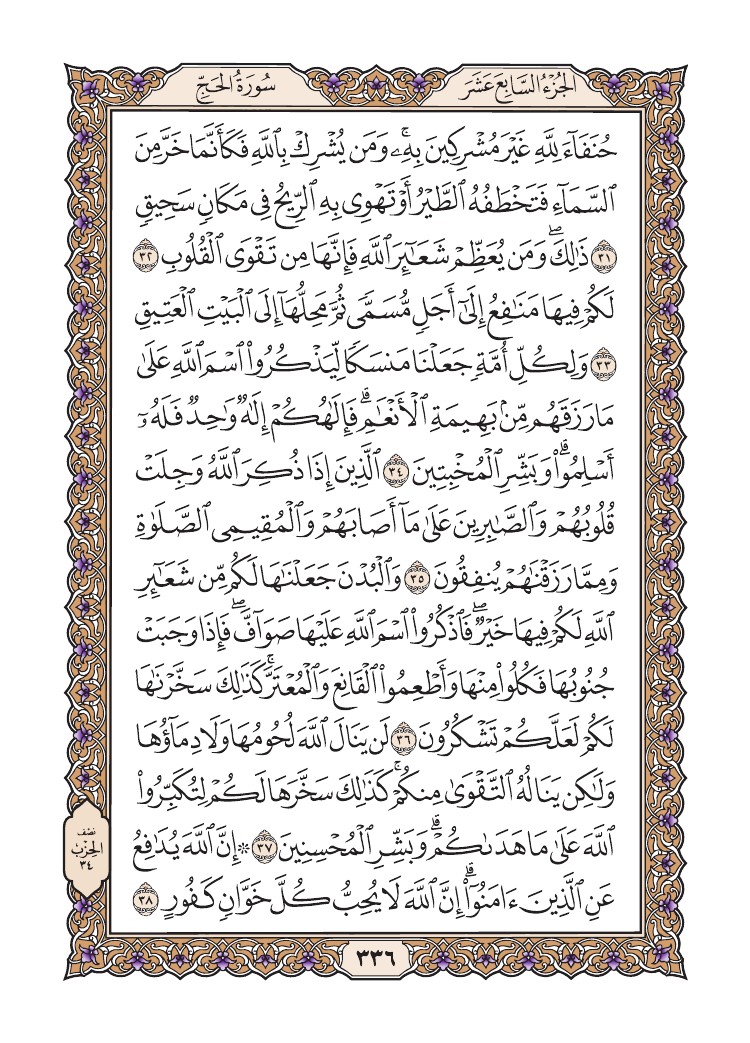 الجزء السابع عشر
سورة الحج
حُنَفَآءَ لِلَّهِ غَيْرَ مُشْرِكِينَ بِهِۦۚ وَمَن يُشْرِكْ بِٱللَّهِ فَكَأَنَّمَا خَرَّ مِنَ
ٱلسَّمَآءِ فَتَخْطَفُهُ ٱلطَّيْرُ أَوْ تَهْوِى بِهِ ٱلرِّيحُ فِى مَكَانٖ سَحِيقٖ
٣١ ذَٰلِكَۖ وَمَن يُعَظِّمْ شَعَٰٓئِرَ ٱللَّهِ فَإِنَّهَا مِن تَقْوَى ٱلْقُلُوبِ ٣٢
لَكُمْ فِيهَا مَنَٰفِعُ إِلَىٰٓ أَجَلٖ مُّسَمّٗى ثُمَّ مَحِلُّهَآ إِلَى ٱلْبَيْتِ ٱلْعَتِيقِ
٣٣ وَلِكُلِّ أُمَّةٖ جَعَلْنَا مَنسَكٗا لِّيَذْكُرُوا۟ ٱسْمَ ٱللَّهِ عَلَىٰ
مَا رَزَقَهُم مِّنۢ بَهِيمَةِ ٱلْأَنْعَٰمِۗ فَإِلَٰهُكُمْ إِلَٰهٞ وَٰحِدٞ فَلَهُۥٓ
أَسْلِمُوا۟ۗ وَبَشِّرِ ٱلْمُخْبِتِينَ ٣٤ ٱلَّذِينَ إِذَا ذُكِرَ ٱللَّهُ وَجِلَتْ
قُلُوبُهُمْ وَٱلصَّٰبِرِينَ عَلَىٰ مَآ أَصَابَهُمْ وَٱلْمُقِيمِى ٱلصَّلَوٰةِ
وَمِمَّا رَزَقْنَٰهُمْ يُنفِقُونَ ٣٥ وَٱلْبُدْنَ جَعَلْنَٰهَا لَكُم مِّن شَعَٰٓئِرِ
ٱللَّهِ لَكُمْ فِيهَا خَيْرٞۖ فَٱذْكُرُوا۟ ٱسْمَ ٱللَّهِ عَلَيْهَا صَوَآفَّۖ فَإِذَا وَجَبَتْ
جُنُوبُهَا فَكُلُوا۟ مِنْهَا وَأَطْعِمُوا۟ ٱلْقَانِعَ وَٱلْمُعْتَرَّۚ كَذَٰلِكَ سَخَّرْنَٰهَا
لَكُمْ لَعَلَّكُمْ تَشْكُرُونَ ٣٦ لَن يَنَالَ ٱللَّهَ لُحُومُهَا وَلَا دِمَآؤُهَا
وَلَٰكِن يَنَالُهُ ٱلتَّقْوَىٰ مِنكُمْۚ كَذَٰلِكَ سَخَّرَهَا لَكُمْ لِتُكَبِّرُوا۟
ٱللَّهَ عَلَىٰ مَا هَدَىٰكُمْۗ وَبَشِّرِ ٱلْمُحْسِنِينَ ٣٧ ۞إِنَّ ٱللَّهَ يُدَٰفِعُ
عَنِ ٱلَّذِينَ ءَامَنُوٓا۟ۗ إِنَّ ٱللَّهَ لَا يُحِبُّ كُلَّ خَوَّانٖ كَفُورٍ ٣٨
نصف
الحزب
٣٤
٣٣٦